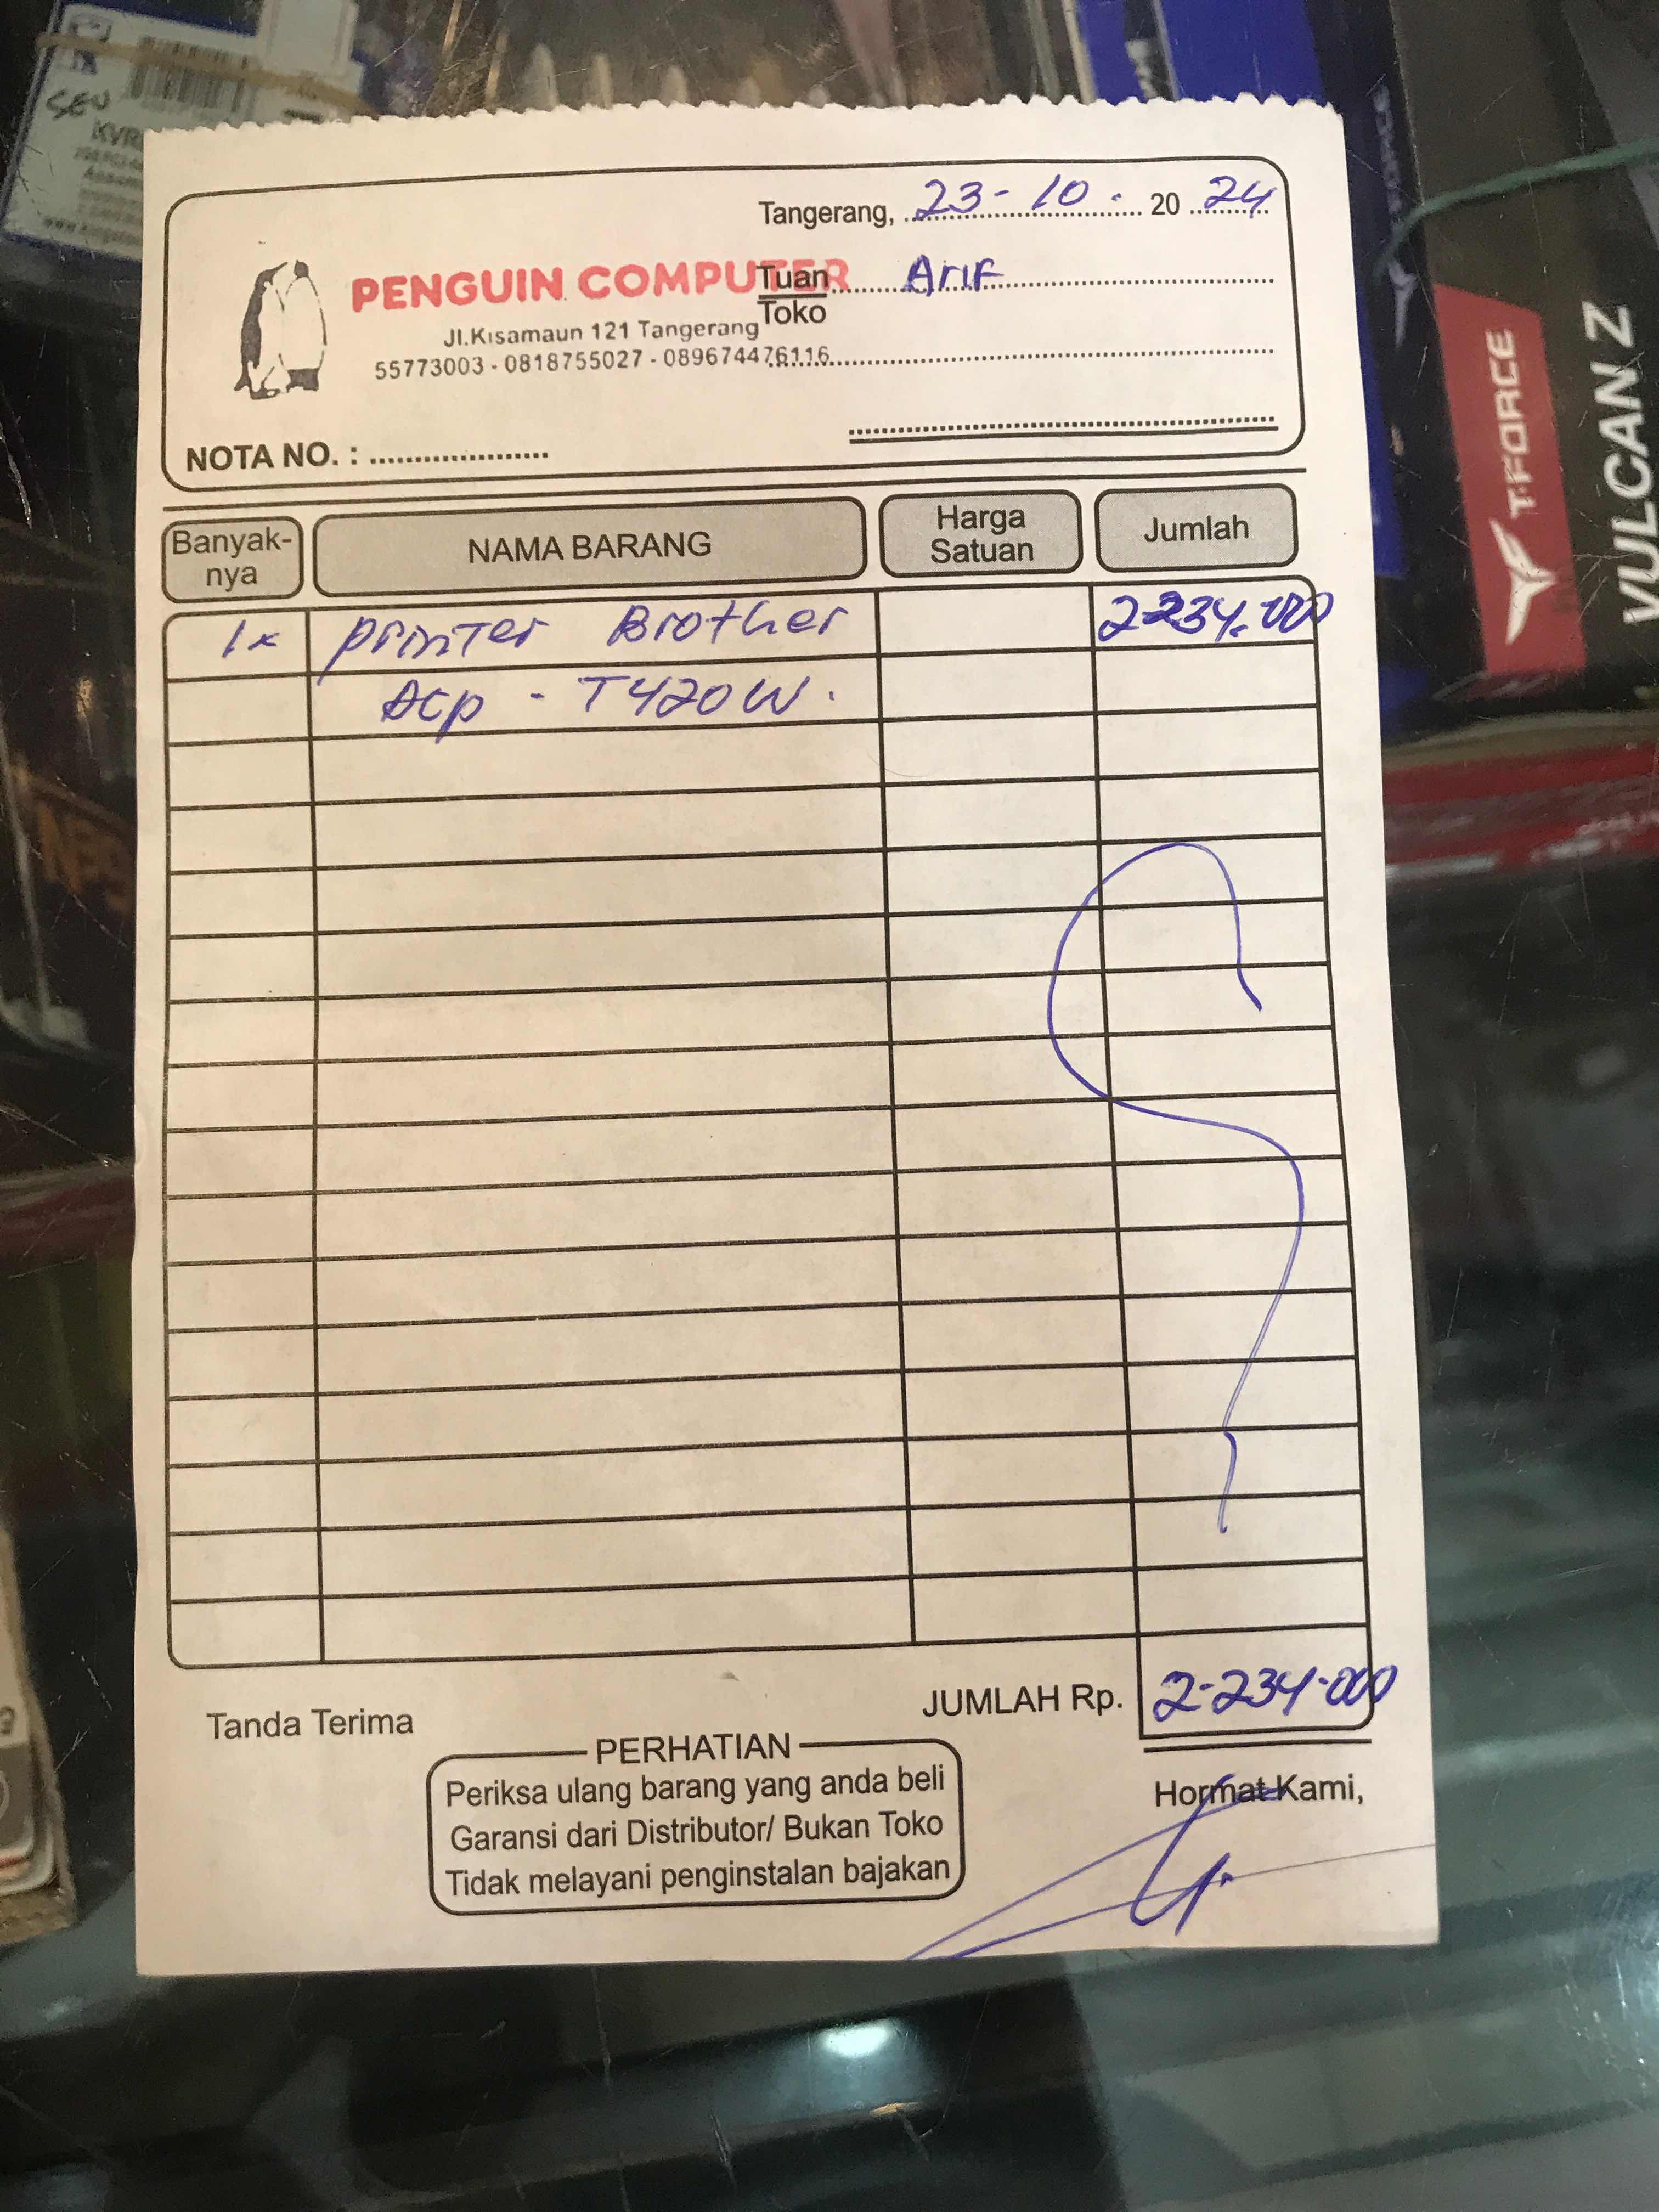 SEU
KVR
Tangerang, 23 - 10 . 20 24
PENGUIN COMPUTER
Tuan Arif
Toko
Jl.Kisamaun 121 Tangerang
55773003 - 0818755027 - 089674476116
NOTA NO. :
Banyak-
nya
NAMA BARANG
Harga
Satuan
Jumlah
1x printer Brother 2-234.000
Dcp - T420W.
JUMLAH Rp. 2-234-000
Tanda Terima
PERHATIAN
Periksa ulang barang yang anda beli
Garansi dari Distributor/ Bukan Toko
Tidak melayani penginstalan bajakan
Hormat Kami,
T-FORCE
VULCAN Z